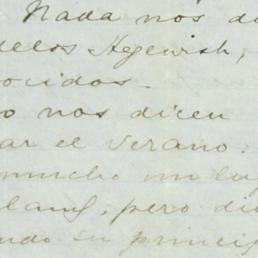 Nada nos d
delos Hegewish,
ocidos.
o nos dicen
ar el verano.
mucho un lu
land, pero di
ndo su princip